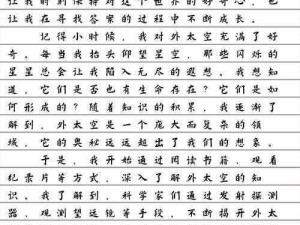 让我们对这个世界的好奇心，也
让我在寻找答案的过程中不断成长。
记得小时候，我对外太空充满了好
奇。每当我抬头仰望星空，那些闪烁的
星星总会让我陷入无尽的遐想。我想知
道，它们是否也有生命存在？它们是如
何形成的？随着知识的积累，我逐渐了
解到，外太空是一个庞大而复杂的领
域，它的奥秘远远超出了我们的想象。
于是，我开始通过阅读书籍、观看
纪录片等方式，深入了解外太空的知
识。我了解到，科学家们通过发射探测
器、观测望远镜等手段，不断揭开外太